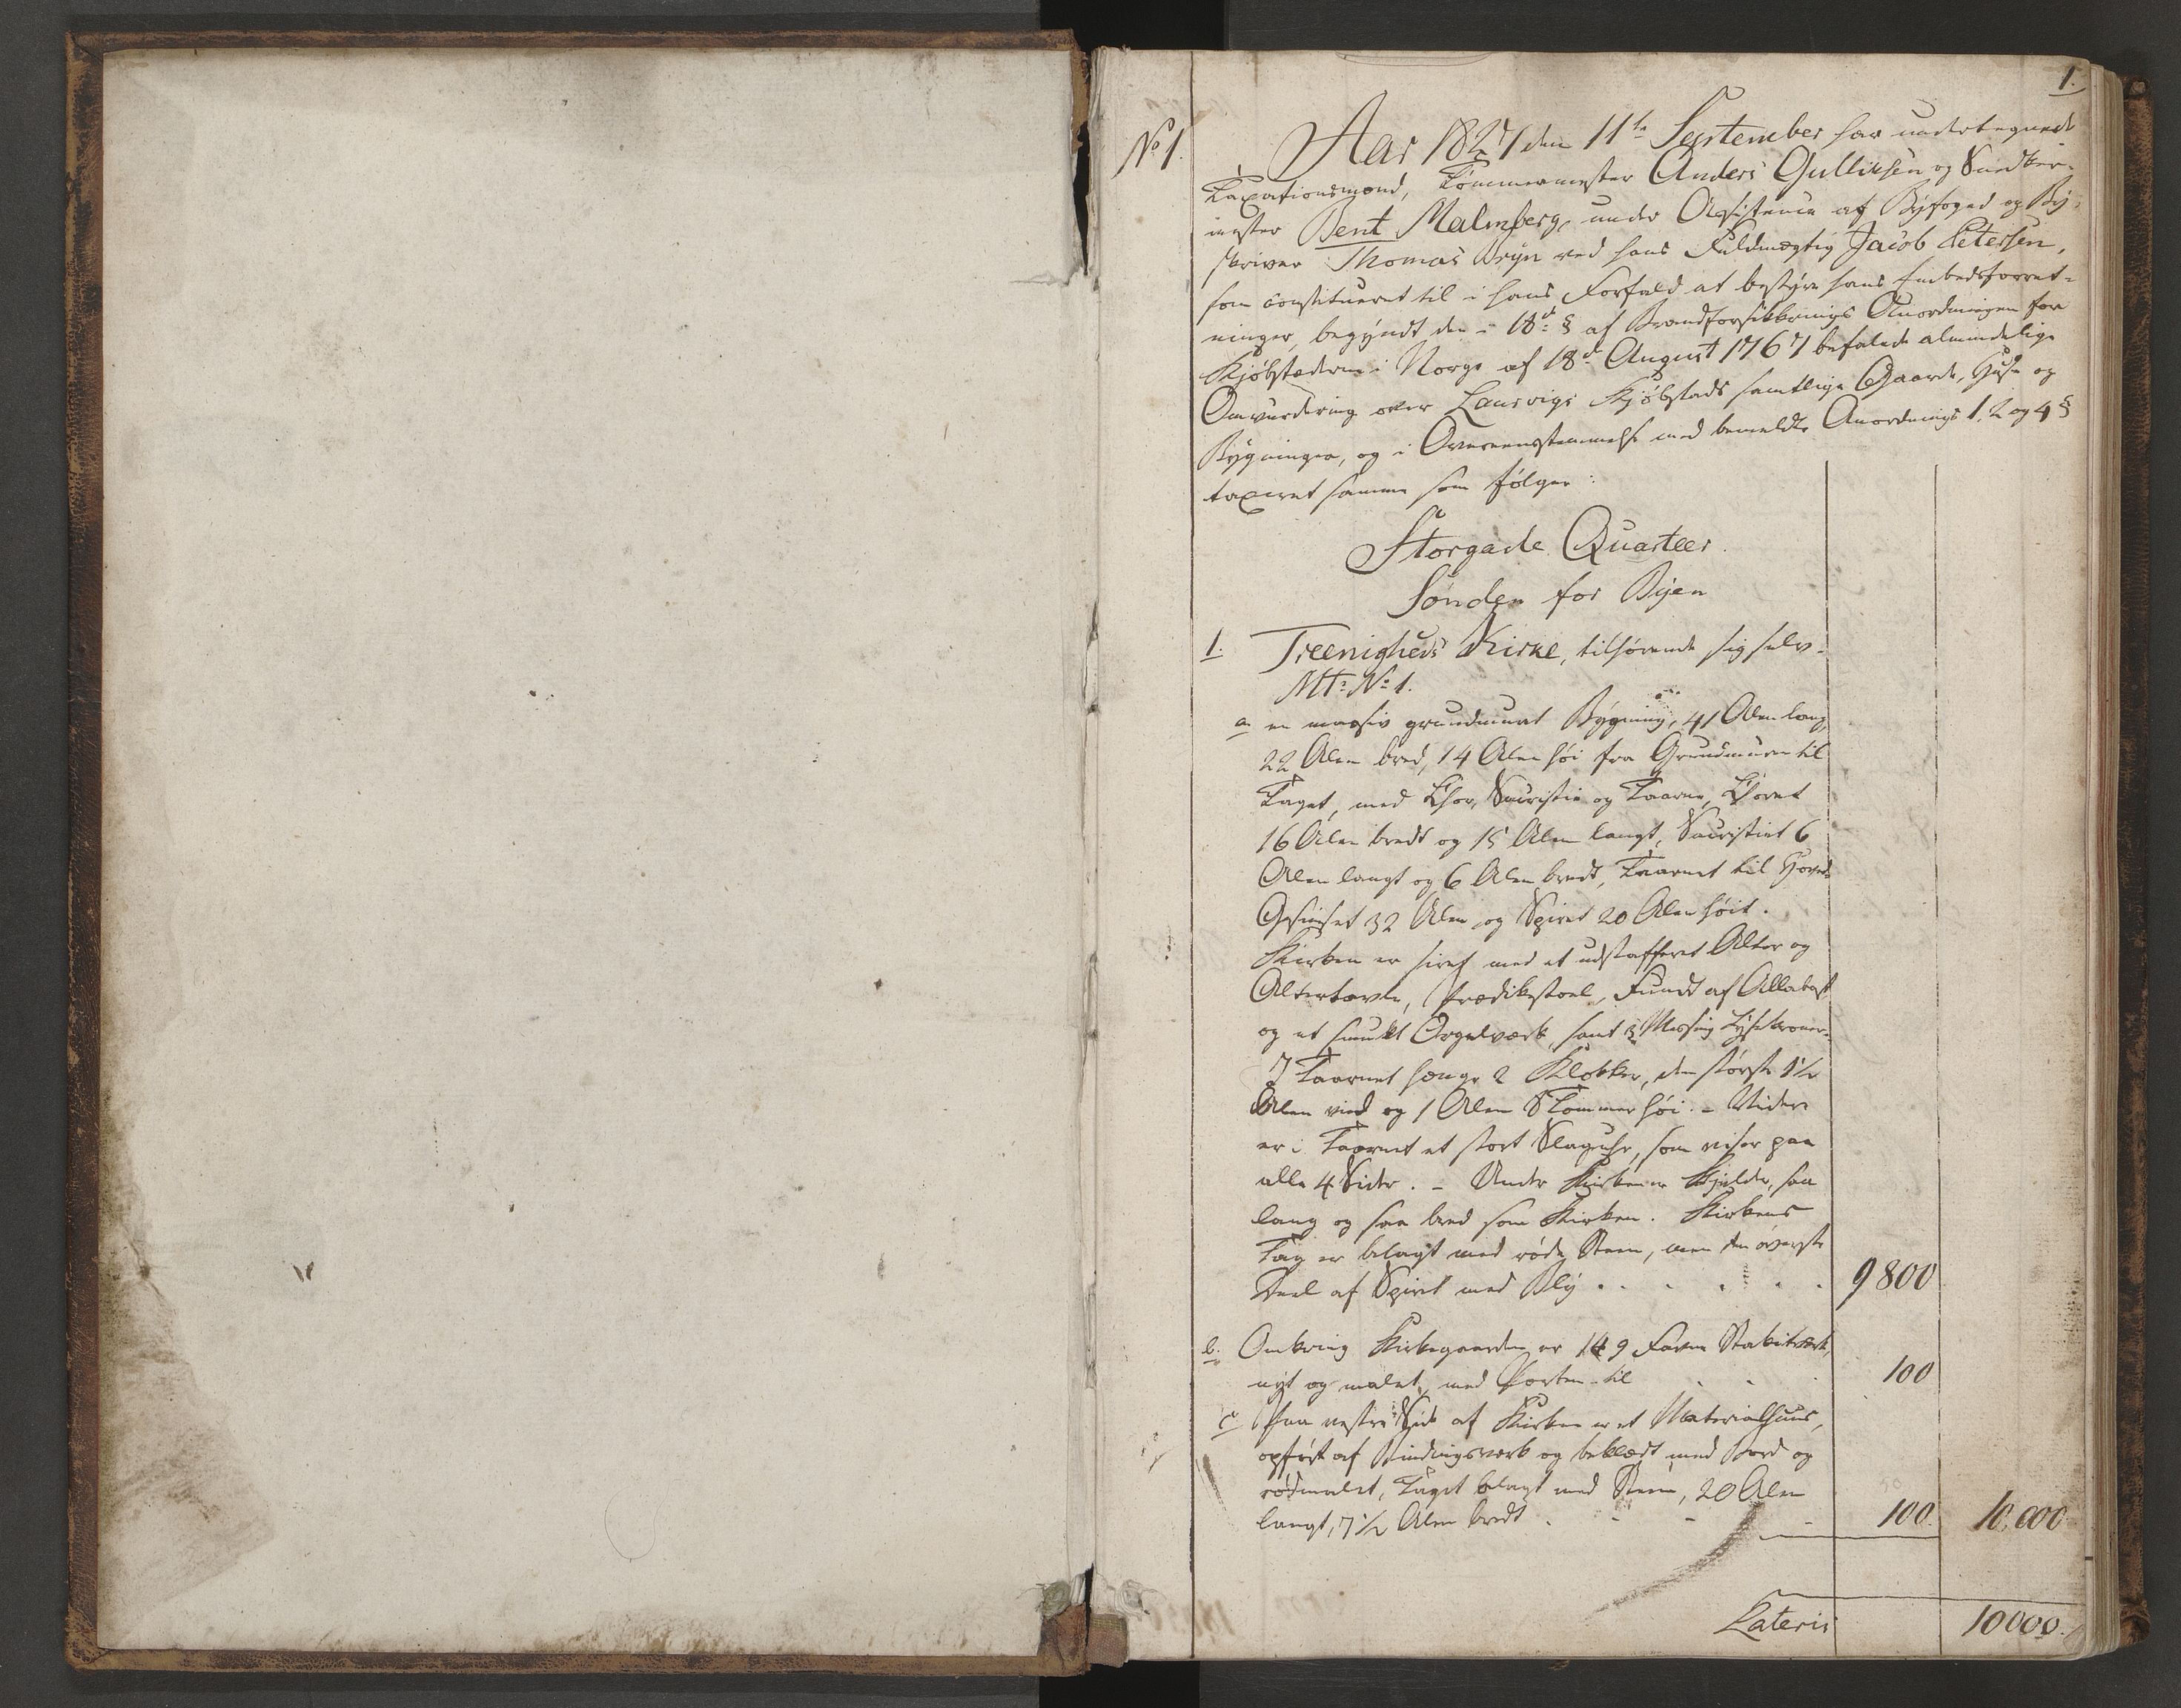 1.
No 1.
Aar 1827 den 11te September har undertegnede
Taxationsmænd, Tømmermester Anders Gulliksen og Snedker-
mester Bent Malmberg, under Assistence af Byfoged og By-
skriver Thomas Bryn ved hans Fuldmægtig Jacob Petersen,
som constitueret til i hans Forfald at bestyre hans Embedsforret-
ninger, begyndt den i 18de § af Brandforsikkrings Anordningen for
Kjøbstæderne i Norge af 18de August 1767 befalede almindelige
Omvurdering over Laurvigs Kjøbstads samtlige Gaarde, Huse og
Bygninger, og i Overeensstemmelse med bemeldte Anordnings 1, 2 og 4 §
taxeret samme som følger:
Storgade Quarteer.
Sønden for Byen
1. Treenigheds Kirke, tilhørende sig selv.
Mt: No 1.
a en massiv grundmuret Bygning, 41 Alen lang,
22 Alen bred, 14 Alen høi fra Grundmuren til
Taget, med Chor, Sacristie og Taarn, Choret
16 Alen bredt og 15 Alen langt, Sacristiet 6
Alen langt og 6 Alen bredt, Taarnet til Hoved-
Gesimset 32 Alen og Spiret 20 Alen høit.
Kirken er siret med et udstafferet Alter og
Altertavle, Prædikestoel, Fundt af Allabast
og et smukt Orgelværk, samt 3 Messing Lysekroner.
I Taarnet hænge 2 Klokker, den største 1½
Alen viid og 1 Alen 8 Tommer høi. - Videre
er i Taarnet et stort Slaguhr, som viser paa
alle 4 Sider. - Under Kirken er Kjelder, saa
lang og saa bred som Kirken. Kirkens
Tag er belagt med røde Steen, men den øverste
Deel af Spiret med Bly . . . . . . 9800
b. Omkring Kirkegaarden er 149 Favne Stakitværk,
nyt og malet, med Porten til . . . 100
c Paa vestre Side af Kirken er et Materialhuus,
opført af Bindingsværk og beklædt med Bord og
rødmalet, Taget belagt med Steen, 20 Alen
langt, 7½ Alen bredt . - - - 100. 10,000
Lateris 10000.